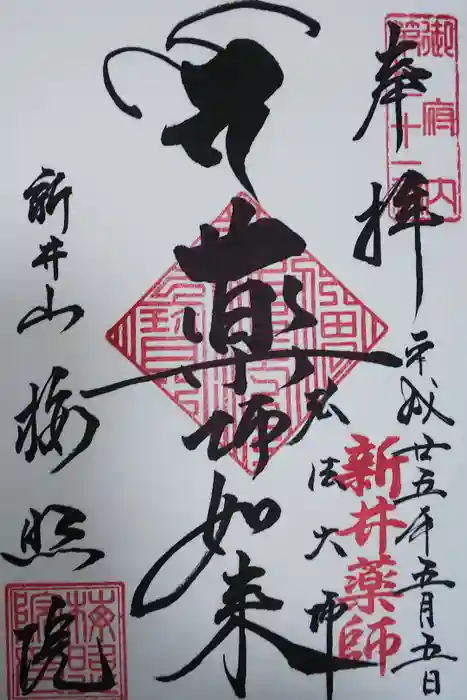 奉拝
御府内
平成廿五年五月五日
新井薬師
弘法大師
薬師如来
新井山梅照院